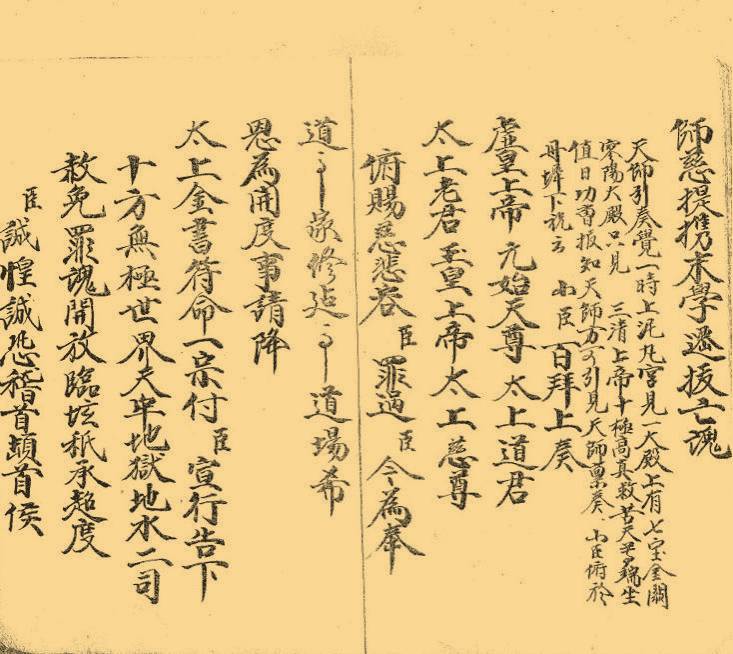 師慈提携末學遷拔亡魂
天師引奏覺一時上泥丸宮見一大殿上有七宝金闕
寥陽大殿只見 三清上帝十極高真救苦天尊端坐
值日功曹报知天師方可引見 天師稟奏 小臣俯於
丹墀下說云 小臣百拜上奏
虛皇上帝 元始天尊 太上道君
太上老君 玉皇上帝 太上慈尊
俯賜慈悲容 臣 罪過 臣 今為奉
道 家修延 道場希
恩為開度事請降
太上金書符命一宗付 臣 宣行告下
十方無極世界天牢地獄地水二司
赦免罪魂開放臨壇祇承超度
臣 誠惶誠恐稽首頓首俟